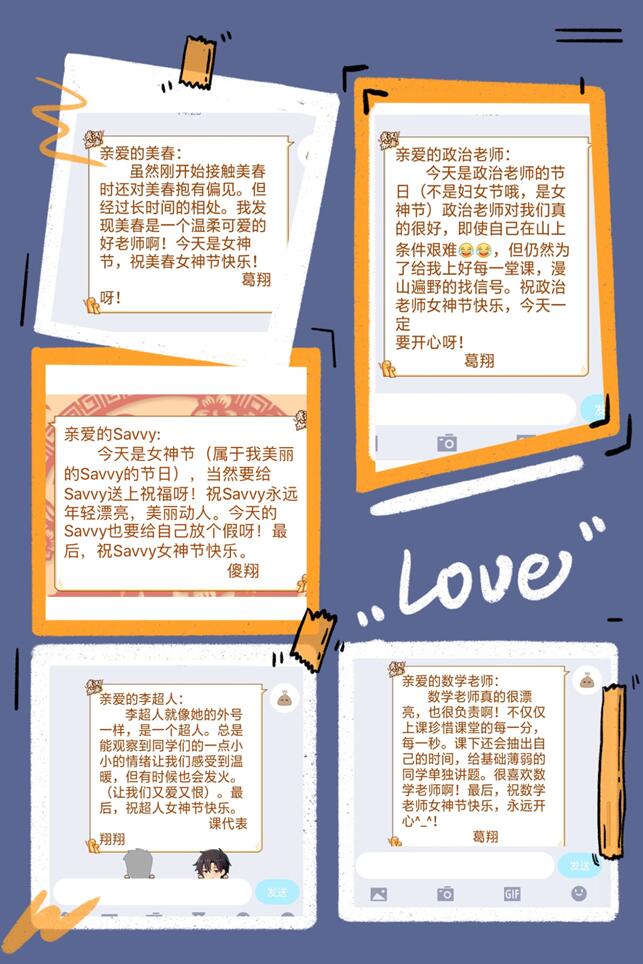 亲爱的美春：
虽然刚开始接触美春
时还对美春抱有偏见。但
经过长时间的相处。我发
现美春是一个温柔可爱的
好老师啊！今天是女神
节，祝美春女神节快乐！
葛翔
呀！
亲爱的政治老师：
今天是政治老师的节
日（不是妇女节哦，是女
神节）政治老师对我们真
的很好，即使自己在山上
条件艰难😂😂，但仍然为
了给我上好每一堂课，漫
山遍野的找信号。祝政治
老师女神节快乐，今天一
定
要开心呀！
葛翔
发
亲爱的Savvy:
今天是女神节（属于我美丽
的Savvy的节日），当然要给
Savvy送上祝福呀！祝Savvy永远
年轻漂亮，美丽动人。今天的
Savvy也要给自己放个假呀！最
后，祝Savvy女神节快乐。
傻翔
Love
亲爱的李超人：
李超人就像她的外号
一样，是一个超人。总是
能观察到同学们的一点小
小的情绪让我们感受到温
暖，但有时候也会发火。
（让我们又爱又恨）。最
后，祝超人女神节快乐。
课代表
翔翔
发送
亲爱的数学老师：
数学老师真的很漂
亮，也很负责啊！不仅仅
上课珍惜课堂的每一分，
每一秒。课下还会抽出自
己的时间，给基础薄弱的
同学单独讲题。很喜欢数
学老师啊！最后，祝数学
老师女神节快乐，永远开
心^_^！
葛翔
发送
GIF